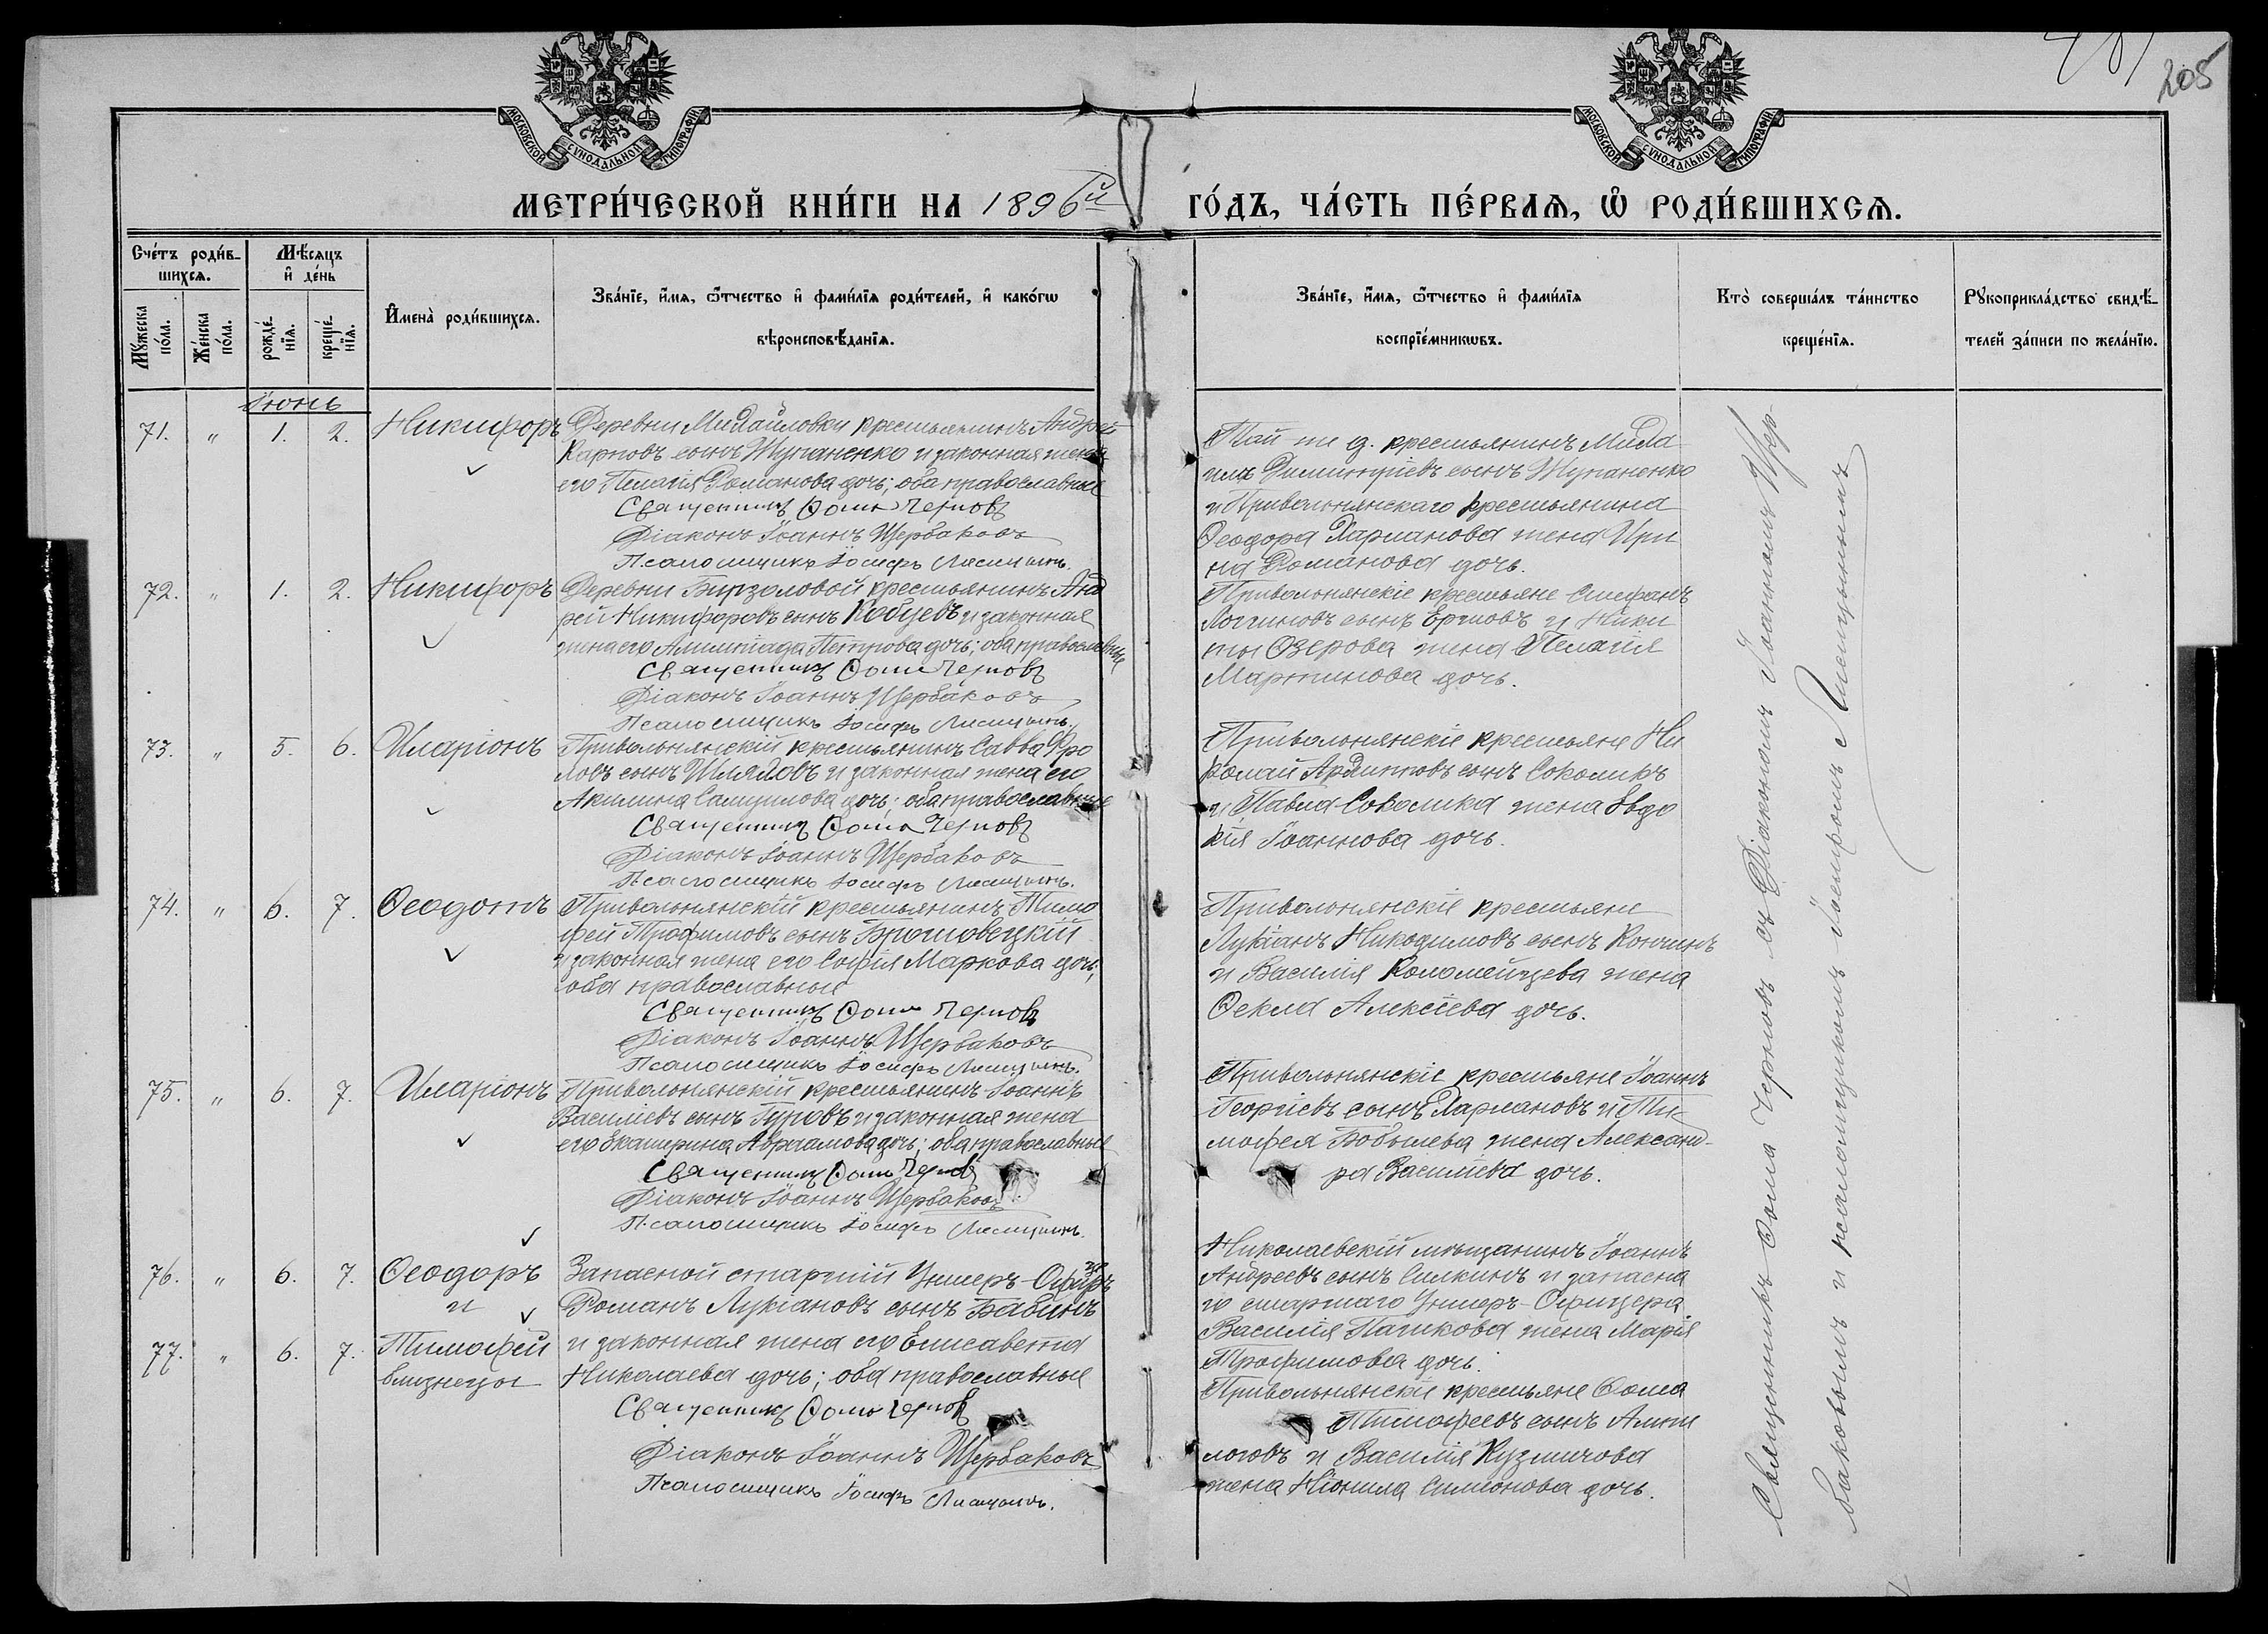 205
МОСКОВСКОЙ СУНОДАЛЬНОЙ ТИПОГРАФІИ
МОСКОВСКОЙ СУНОДАЛЬНОЙ ТИПОГРАФІИ
МЕТРИ́ЧЕСКОЙ КНИ́ГИ НА 1896й ГО́ДЪ, ЧА́СТЬ ПЕ́РВАЯ, Ѡ РОДИ́ВШИХСЯ.
Сче́тъ роди́в-
шихся.
Мꙋ́жеска по́ла.
Же́нска по́ла.
Мѣ́сяцъ и҆ де́нь
рожде́-
нїя.
креще́-
нїя.
И҆мена̀ роди́вшихся.
Зва́нїе, и҆́мя, ѻ҆́тчество и҆ фами́лїя роди́телей, и҆ како́гѡ
вѣроисповѣ́данїя.
Зва́нїе, и҆́мя, ѻ҆́тчество и҆ фами́лїя
воспрїе́мникѡвъ.
Кто̀ соверша́лъ та́инство
креще́нїя.
Рꙋкоприкла́дство свидѣ́-
телей за́писи по жела́нїю.
Іюнь
71. " 1. 2. Никифоръ
Деревни Михайловки крестьянинъ Андрей
Карповъ сынъ Жупаненко и законная жена
его Пелагія Романова дочь; оба православные
Священникъ Ѳома Черновъ
Діаконъ Іоаннъ Щербаковъ
Псаломщикъ Іосифъ Лисицынъ.
Той же д. крестьянинъ Миха
илъ Димитріевъ сынъ Жупаненко
и Привольнянскаго крестьянина
Ѳеодора Харланова жена Ири
на Романова дочь.
72. " 1. 2. Никифоръ
Деревни Бирзоловой крестьянинъ Анд
рей Никифоровъ сынъ Кобцевъ и законная
жена его Алимпіада Петрова дочь; оба православные
Священникъ Ѳома Черновъ
Діаконъ Іоаннъ Щербаковъ
Псаломщикъ Іосифъ Лисицынъ.
Привольнянскіе крестьяне Стефанъ
Логгиновъ сынъ Ерговъ и Ники
ты Озерова жена Пелагія
Мартинова дочь.
73. " 5. 6. Иларіонъ
Привольнянскій крестьянинъ Савва Фро
ловъ сынъ Шляховъ и законная жена его
Акилина Самуилова дочь; оба православные
Священникъ Ѳома Черновъ
Діаконъ Іоаннъ Щербаковъ
Псаломщикъ Іосифъ Лисицынъ.
Привольнянскіе крестьяне Ни
колай Архиповъ сынъ Соколикъ
и Павла Соколика жена Евдо
кія Іоаннова дочь.
74. " 6. 7. Ѳеодотъ
Привольнянскій крестьянинъ Тимо
фей Трофимовъ сынъ
и законная жена его Софія Маркова дочь;
оба православные
Священникъ Ѳома Черновъ
Діаконъ Іоаннъ Щербаковъ
Псаломщикъ Іосифъ Лисицынъ.
Привольнянскіе крестьяне
Лукіанъ Никодимовъ сынъ Кончинъ
и Василія Коломейцева жена
Ѳекла Алексіева дочь.
75. " 6. 7. Иларіонъ
Привольнянскій крестьянинъ Іоаннъ
Василіевъ сынъ Гуровъ и законная жена
его Екатерина Авраамова дочь; оба православные
Священникъ Ѳома Черновъ
Діаконъ Іоаннъ Щербаковъ
Псаломщикъ Іосифъ Лисицынъ.
Привольнянскіе крестьяне Іоаннъ
Георгіевъ сынъ Харлановъ и Ти-
мофея Бобылева жена Александ-
ра Василіева дочь.
76. " 6. 7. Ѳеодоръ
и
77. " 6. 7. Тимофей
близнецы
Запасной старшій Унтеръ-Офицеръ
Романъ Лукіановъ сынъ Бабинъ
и законная жена его Елисавета
Николаева дочь; оба православные
Священникъ Ѳома Черновъ
Діаконъ Іоаннъ Щербаковъ
Псаломщикъ Іосифъ Лисицынъ.
Николаевскій мѣщанинъ Іоаннъ
Андреевъ сынъ Силкинъ и запасна
го старшаго Унтеръ-Офицера
Василія Пашкова жена Марія
Трофимова дочь.
Привольнянскіе крестьяне Ѳома
Тимофеевъ сынъ
и Василія Кузмичова
жена Неонила Симеонова дочь.
Священникъ Ѳома Черновъ съ Діакономъ Іоанномъ Щер-
баковымъ и псаломщикомъ Іосифомъ Лисицынымъ